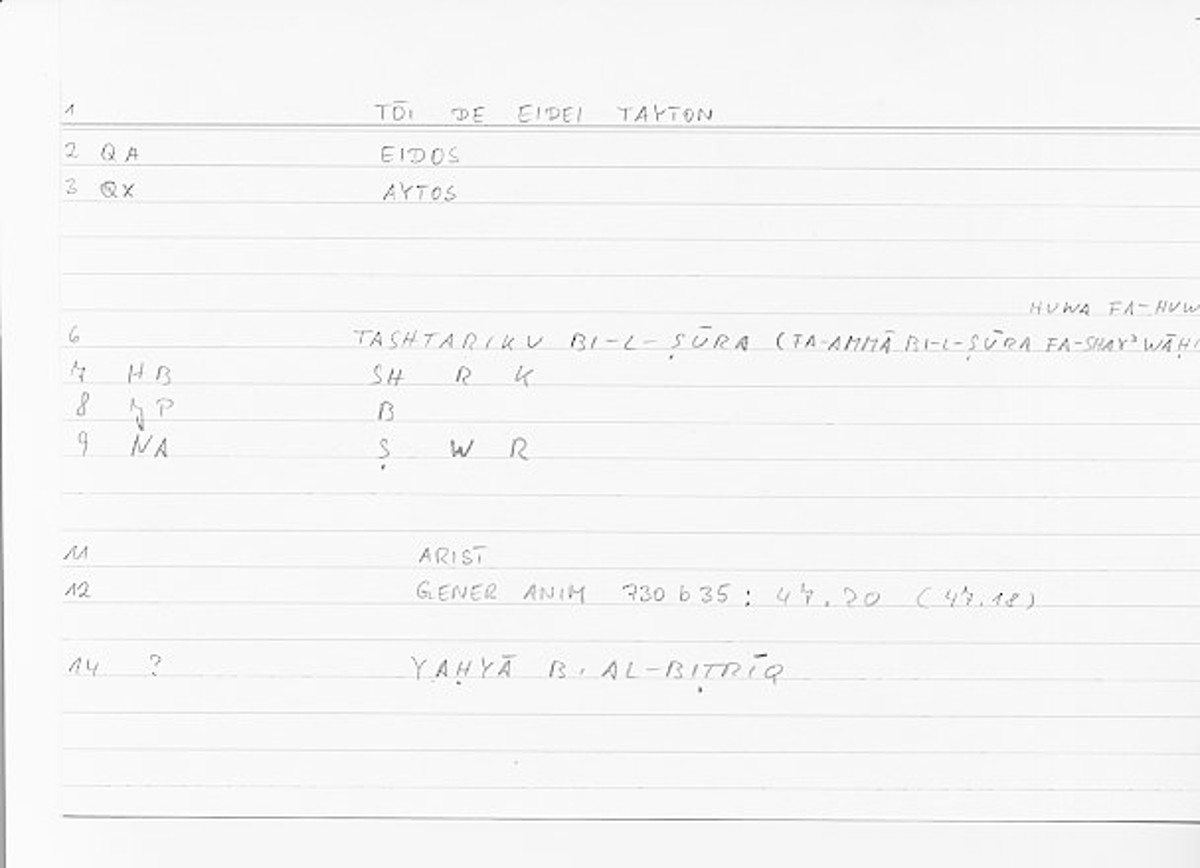 1 TŌI DE EIDEI TAYTON
2 QA EIDOS
3 QX AYTOS
HUWA FA-HUW
6 TASHTARIKU BI-L-ṢŪRA (FA-AMMĀ BI-L-ṢŪRA FA-SHAYʾ WĀḤI
7 HB SH R K
8 JP B
9 NA Ṣ W R
11 ARIST
12 GENER ANIM 730 b 35 : 47.20 (47.18)
14 ? YAḤYĀ B. AL-BIṬRĪQ